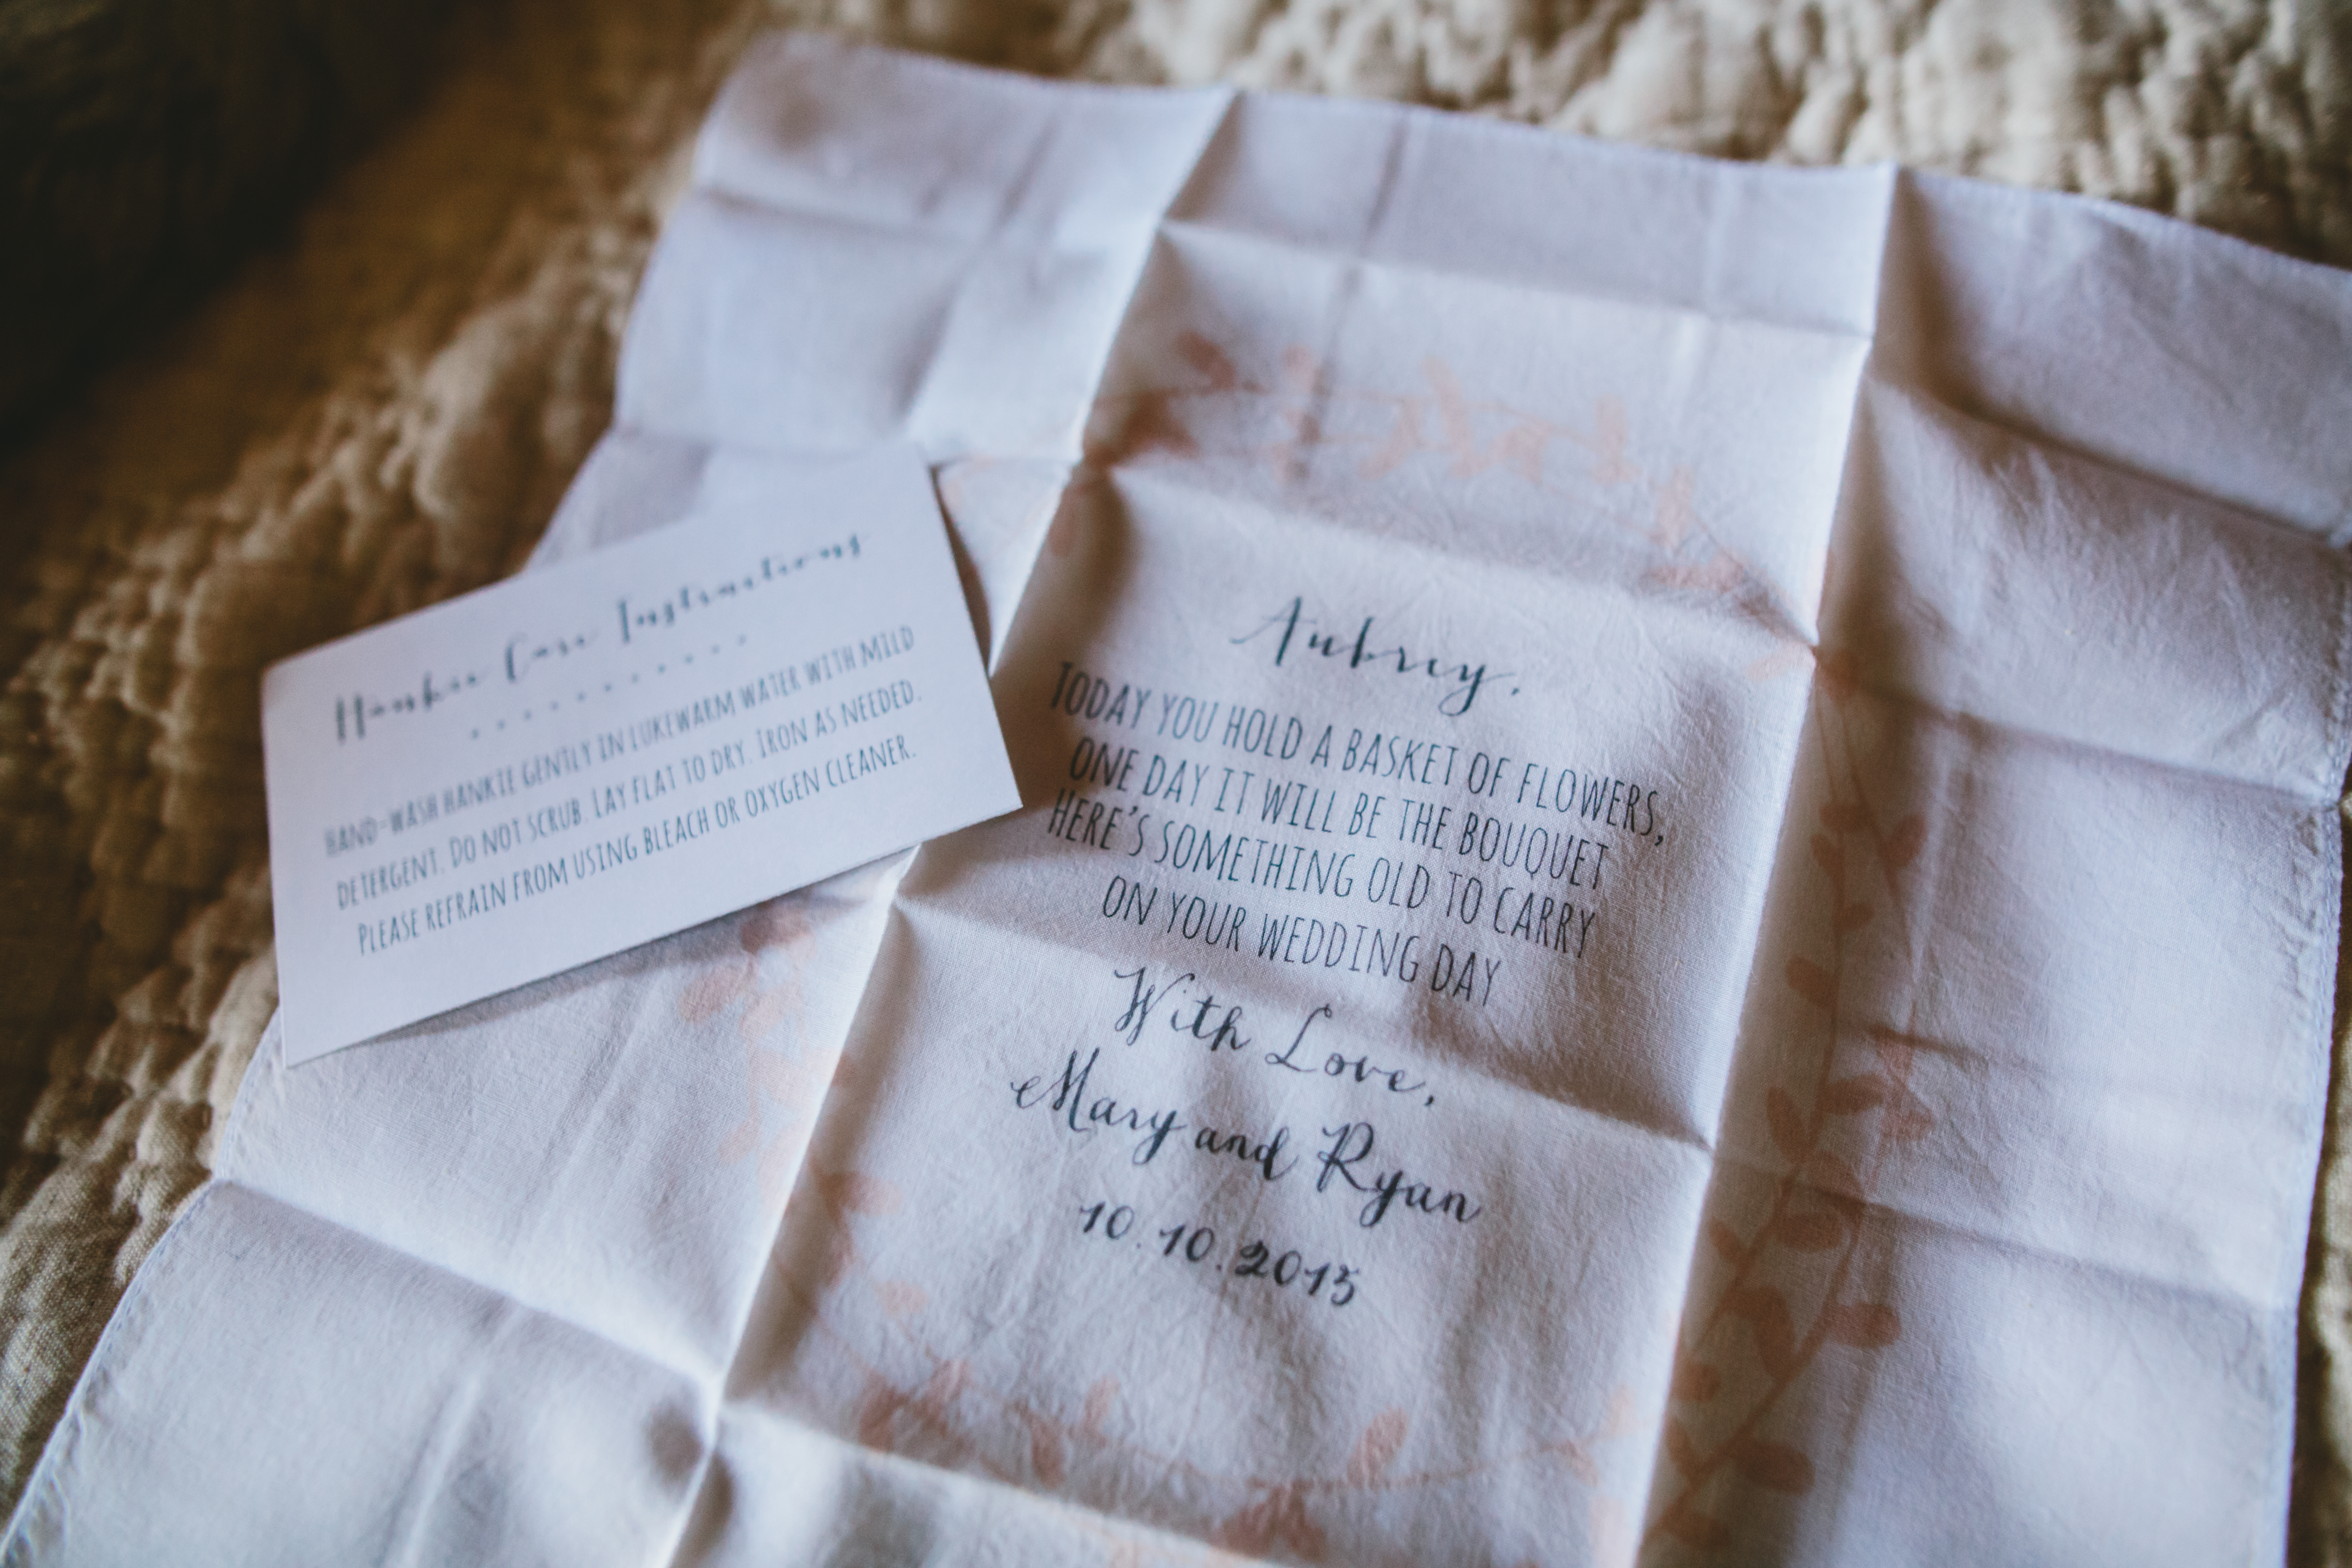 Hankie Care Instructions
HAND-WASH HANKIE GENTLY IN LUKEWARM WATER WITH MILD
DETERGENT. DO NOT SCRUB. LAY FLAT TO DRY. IRON AS NEEDED.
PLEASE REFRAIN FROM USING BLEACH OR OXYGEN CLEANER.
Aubrey,
TODAY YOU HOLD A BASKET OF FLOWERS,
ONE DAY IT WILL BE THE BOUQUET
HERE'S SOMETHING OLD TO CARRY
ON YOUR WEDDING DAY
With Love,
Mary and Ryan
10.10.2015